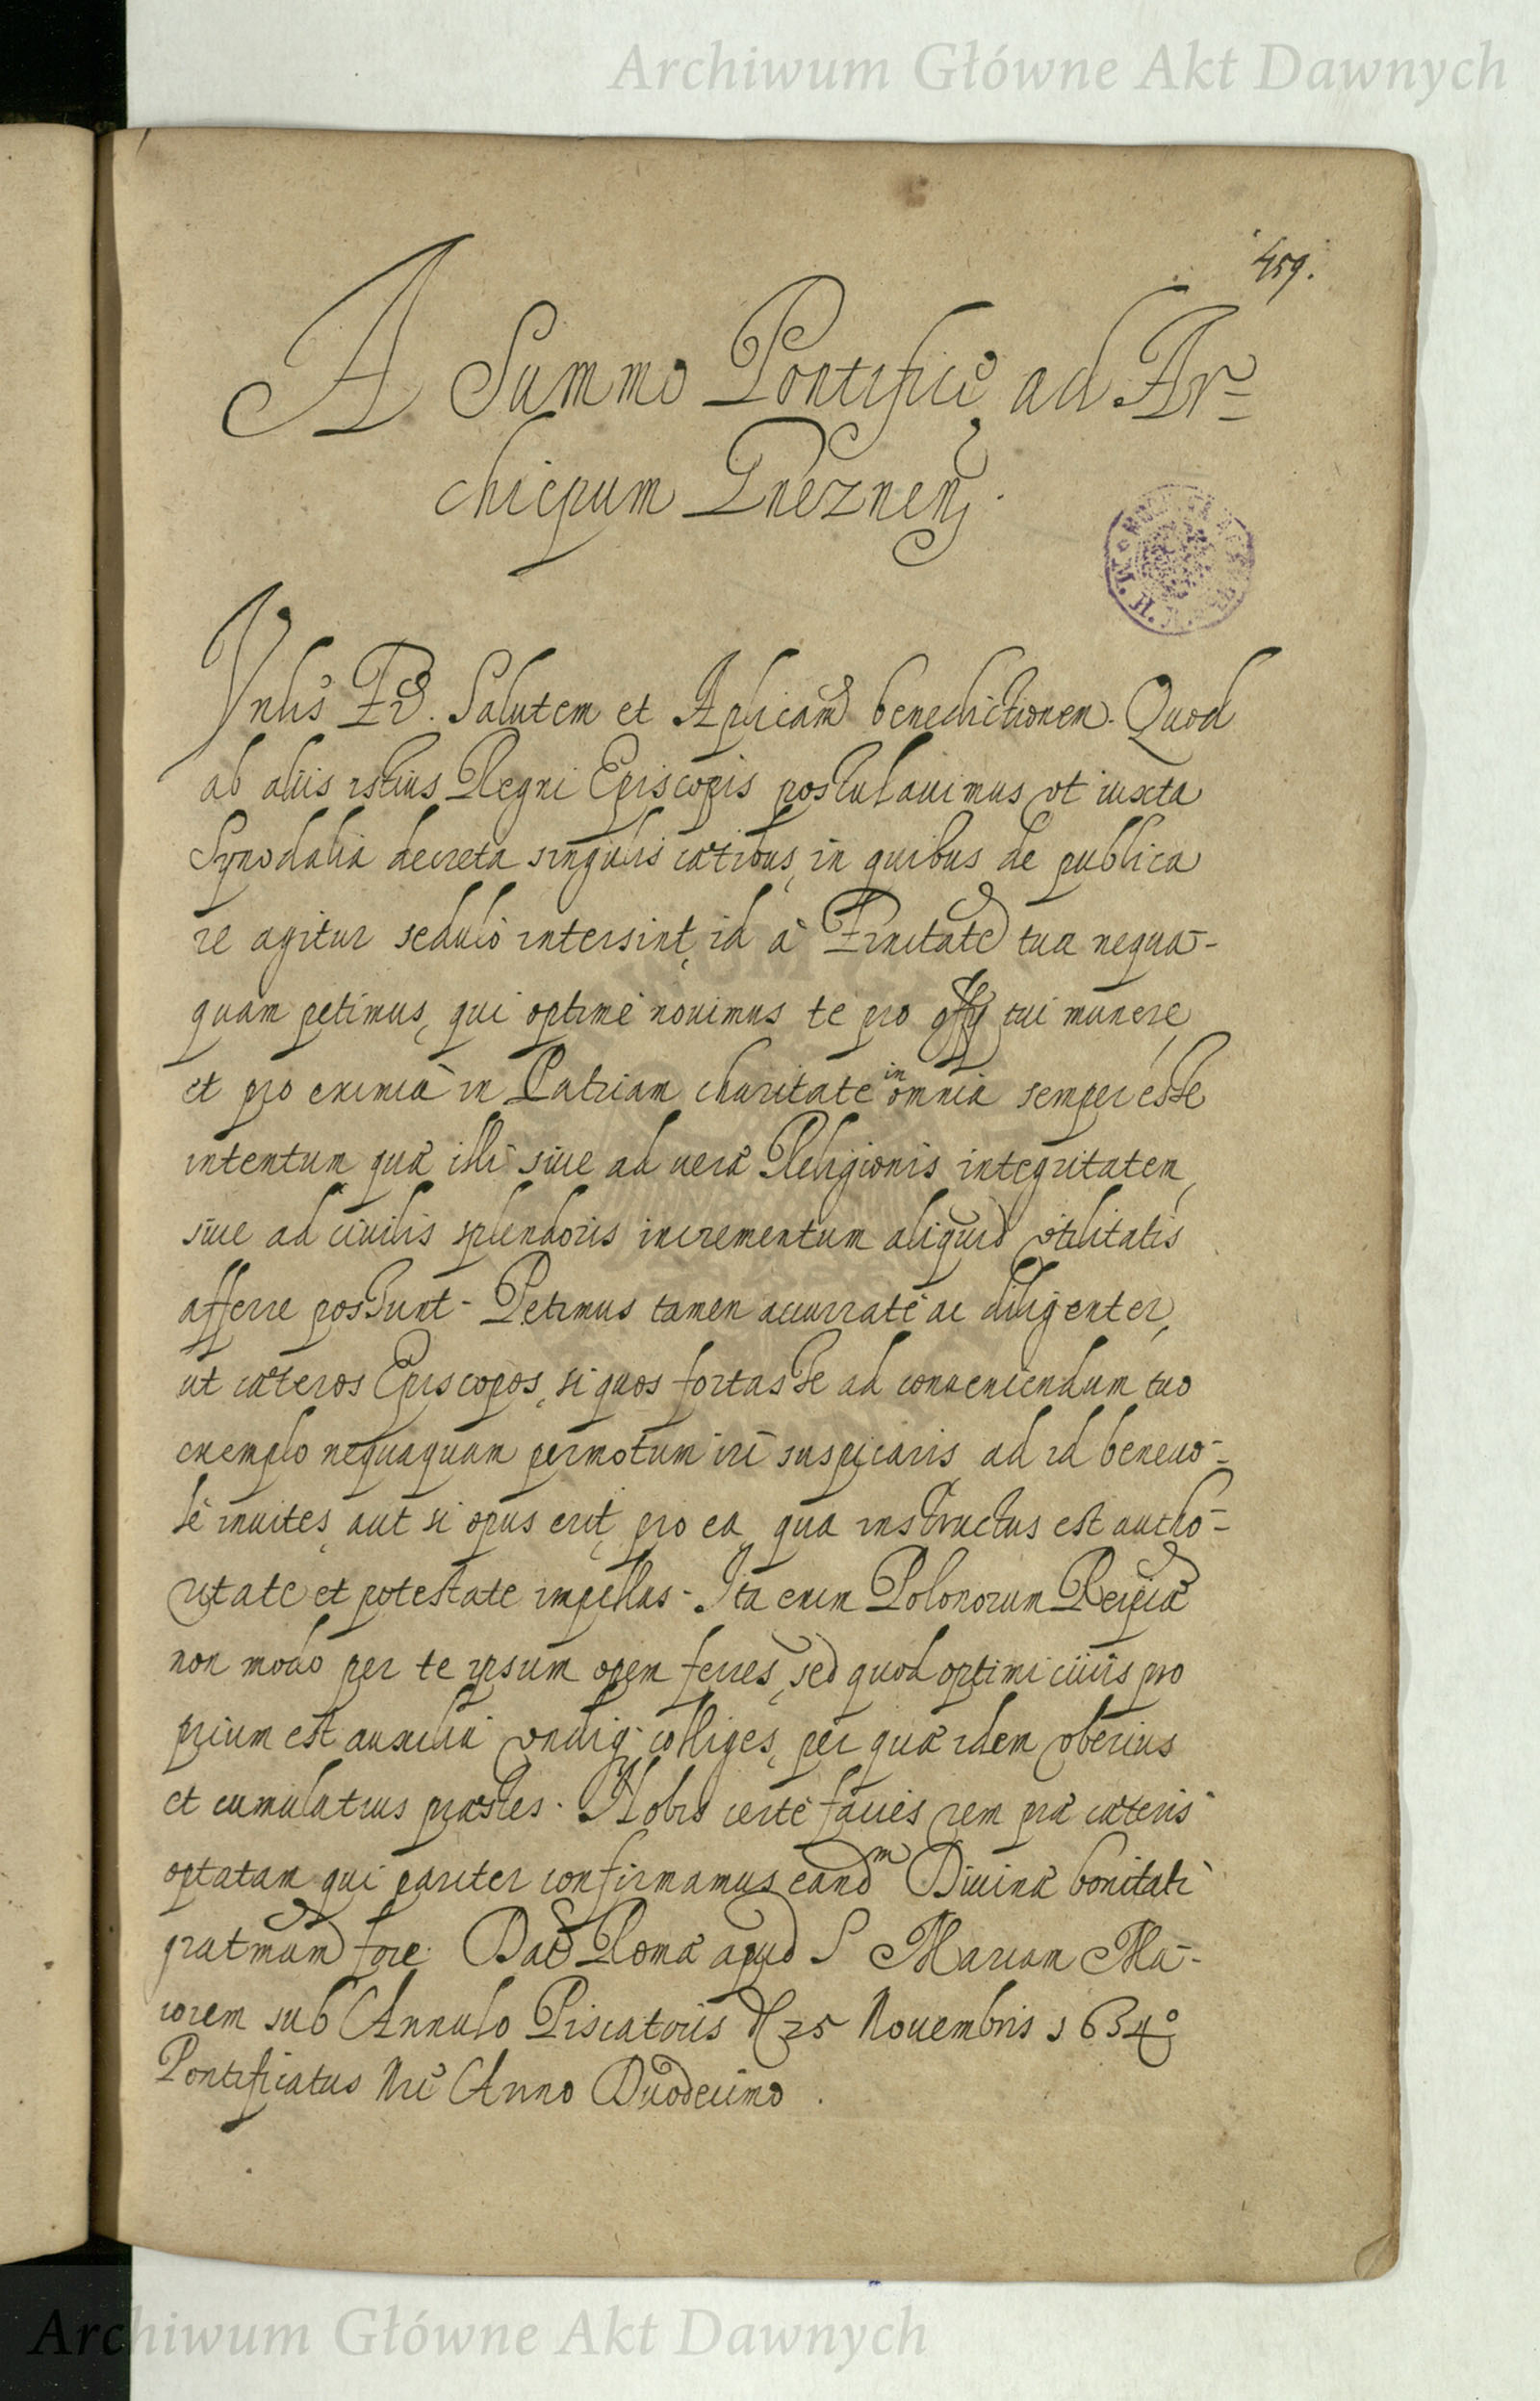 Archiwum Główne Akt Dawnych
459.
A Summo Pontifice ad Ar=
chiepum Gneznen.
Vnlis Fr. Salutem et Aplicam benedictionem. Quod
ab aliis istius Regni Episcopis postulauimus vt iuxta
Synodalia decreta singulis cœtibus, in quibus de publica
re agitur sedulò intersint, id à Frnitate tua nequa-
quam petimus, qui optimè nouimus te pro offij tui munere,
et pro eximià in Patriam charitate in omnia semper esse
intentum quæ illi siue ad ueræ Religionis integritatem,
siue ad ciuilis splendoris incrementum aliquid vtilitatis
afferre possunt - Petimus tamen accurratè ac diligenter,
ut cæteros Episcopos, si quos fortasse ad conueniendum tuo
exemplo nequaquam permotum iri suspicaris ad id beneuo=
lè inuites, aut si opus erit, pro ea, qua instructus est autho=
ritate et potestate impellas - Ita enim Polonorum Reipcæ
non modo per te ipsum opem ferres, sed quod optimi ciuis pro
prium est auxilia vndiq; colliges, per quæ idem vberius
et cumulatius præstes. Nobis certè facies rem præ cæteris
optatam qui pariter confirmamus eandm Diuinæ bonitati
gratmam fore. Dat Romæ apud S Mariam Ma-
iorem sub Annulo Piscatoris d 25 Nouembris 1634º
Pontificatus Nri Anno Duodecimo.
Archiwum Główne Akt Dawnych